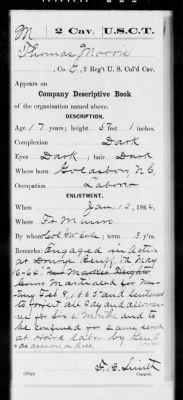 M | 2 Cav. | U.S.C.T.
Thomas Moore
, Co. , 2 Reg't U. S. Col'd Cav.
Appears on
Company Descriptive Book
of the organization named above.
DESCRIPTION.
Age 17 years; height 5 feet 1 inches.
Complexion Dark
Eyes Dark; hair Dark
Where born Goldsboro N.C.
Occupation Labor
ENLISTMENT.
When Jan. 12, 1864.
Where Ft Monroe
By whom Col Cole; term 3 y'rs.
Remarks: Engaged in action
at Drurys Bluff, Va May
16-64.
Court Martialed for Mu-
tiny Feb 8, 1865 and sentenced
to forfeit all pay and allowances
for six months and to
be confined for same period
at hard labor by
as on Roll
Clerk.